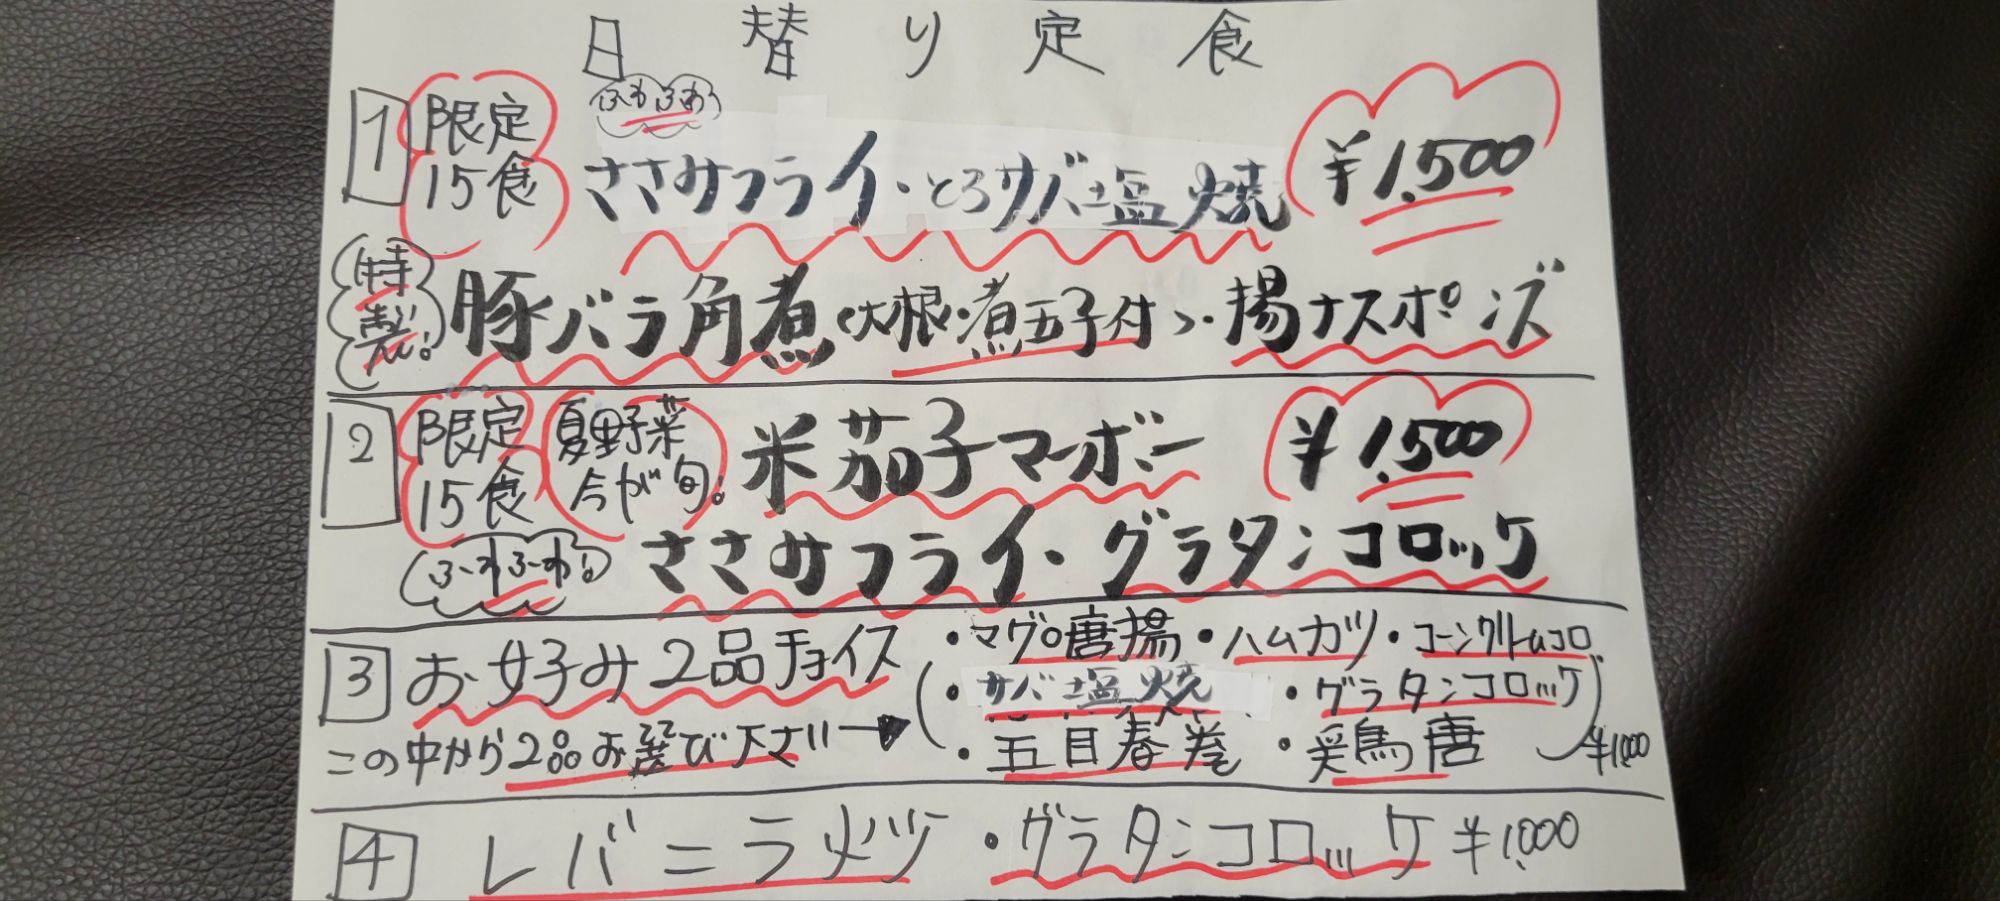 日替り定食
1 限定15食 ふわふわ ささみフライ・とろサバ塩焼 ¥1,500
特製! 豚バラ角煮(大根・煮玉子付)・揚ナスポンズ
2 限定15食 夏野菜今が旬! 米茄子マーボー ¥1,500
ふわふわ! ささみフライ・グラタンコロッケ
3 お好み2品チョイス ・マグロ唐揚・ハムカツ・コーンクリームコロ
・サバ塩焼 ・グラタンコロッケ
この中から2品お選び下さい→ ・五目春巻 ・鶏唐 ¥1,000
4 レバニラ炒メ・グラタンコロッケ ¥1,000